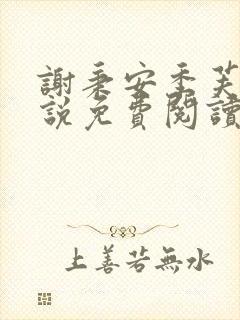 謝秉安季芙
說免費閱讀
上善若無水